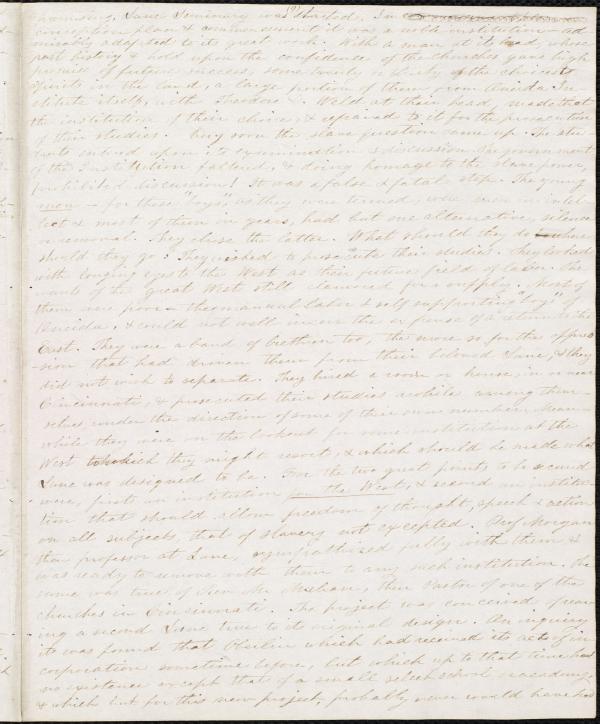 promising, Lane Seminary was started. In
conception plan & commencement it was a noble institution – ad
mirably adapted to its great work. With a man at its head, whose
past history & hold upon the confidence of the churches gave high
promise of future success, some twenty or thirty of the choicest
spirits in the land, a large portion of them from Oneida In-
stitute itself, with Theodore D. Weld at their head, made that
the institution of their choice, & repaired to it for the prosecution
of their studies. Very soon the slave question came up. The stu-
dents entered upon its examination & discussion. The government
of the Institution faltered, & doing homage to the slave power,
prohibited discussion! It was a false & fatal step. The young
men – for these "boys" as they were termed, were men in intel-
lect & most of them in years, had but one alternative, silence
or removal. They chose the latter. What should they do & where
should they go? They wished to prosecute their studies. They looked
with longing eyes to the West as their future field of labor. The
wants of the great West still clamored for a supply. Most of
them were poor – the manual labor & self supporting "boys" of
Oneida, & could not well incur the expense of a return to the
East. They were a band of brethren too, the more so for the oppres
-sion that had driven them from their beloved Lane, & they
did not wish to separate. They hired a room or house, in or near
Cincinnati, & prosecuted their studies awhile among them-
selves, under the direction of some of their own number. Mean-
while they were on the lookout for some institution at the
West to which they might resort, & which should be made what
Lane was designed to be. For the two great points to be secured
were, first, an institution for the West, & second an institu-
tion that should allow freedom of thought, speech & action
on all subjects, that of slavery not excepted. Prof Morgan
then professor at Lane, sympathized fully with them &
was ready to remove with them to any such institution. The
same was true of Rev. Mr. Mahan, then Pastor of one of the
churches in Cincinnati. The project was conceived of rear-
ing a second Lane true to its original design. On inquiry
it was found that Oberlin which had received its act of in-
corporation sometime before, but which up to that time had
no existence except that of a small select school or academy,
& which but for this new project, probably never would have had